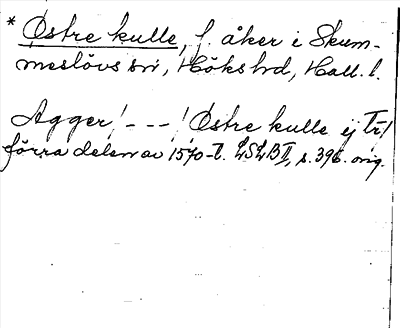 * Östre kulle, f. åker i Skum-
meslövs sn, Höks hd, Hall. l.
Agger! - - -! Östre kulle ij Tr!
förra delen av 1570-t. LSLB II, s. 396. orig.